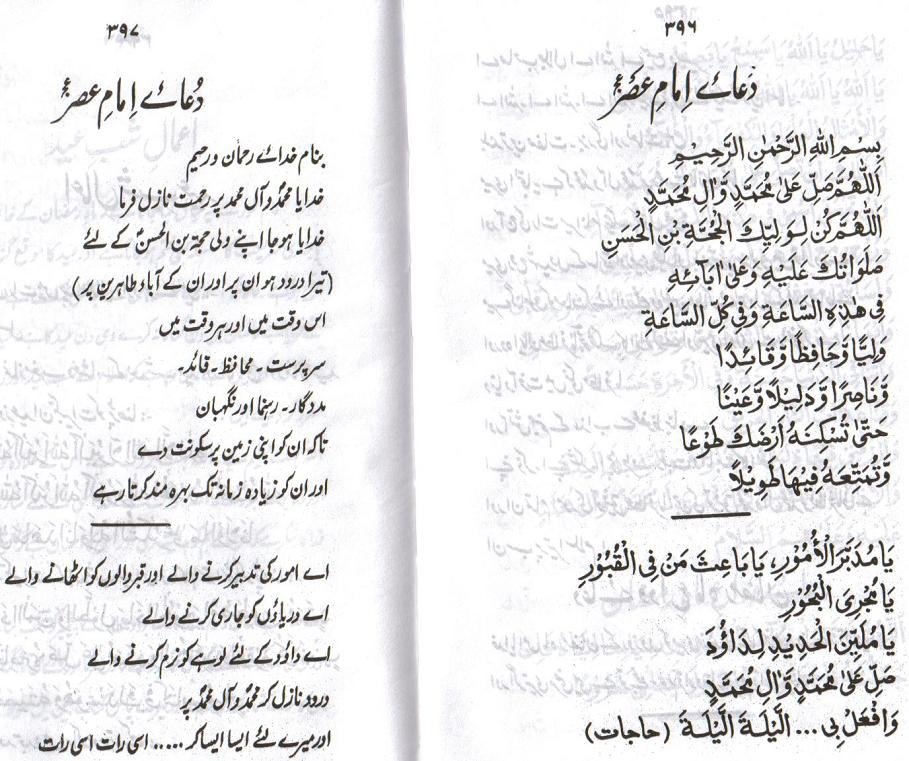 ۳۹۶
دُعائے اِمامِ عصرؑ
بِسْمِ اللهِ الرَّحْمٰنِ الرَّحِيْمِ
اَللّٰهُمَّ صَلِّ عَلٰى مُحَمَّدٍ وَّاٰلِ مُحَمَّدٍ
اَللّٰهُمَّ كُنْ لِوَلِيِّكَ الْحُجَّةِ بْنِ الْحَسَنِ
صَلَوَاتُكَ عَلَيْهِ وَعَلٰى اٰبَآئِهٖ
فِىْ هٰذِهِ السَّاعَةِ وَفِىْ كُلِّ السَّاعَةِ
وَلِيًّا وَّحَافِظًا وَّقَائِدًا
وَّنَاصِرًا وَّدَلِيْلًا وَّعَيْنًا
حَتّٰى تُسْكِنَهٗ اَرْضَكَ طَوْعًا
وَّتُمَتِّعَهٗ فِيْهَا طَوِيْلًا
يَا مُدَبِّرَ الْاُمُوْرِ، يَا بَاعِثَ مَنْ فِى الْقُبُوْرِ
يَا مُجْرِىَ الْبُحُوْرِ
يَا مُلَيِّنَ الْحَدِيْدِ لِدَاوٗدَ
صَلِّ عَلٰى مُحَمَّدٍ وَّاٰلِ مُحَمَّدٍ
وَافْعَلْ بِىْ ... اَللَّيْلَةَ اللَّيْلَةَ (حاجات)
۳۹۷
دُعائے اِمامِ عصرؑ
بنام خدائے رحمان و رحیم
خدایا محمدؐ و آل محمد پر رحمت نازل فرما
خدایا ہوجا اپنے ولی حجۃ بن الحسنؑ کے لئے
(تیرا درود ہو ان پر اور ان کے آباء طاہرین پر)
اس وقت میں اور ہر وقت میں
سرپرست ۔ محافظ ۔ قائد ۔
مددگار ۔ رہنما اور نگہبان
تاکہ ان کو اپنی زمین پر سکونت دے
اور ان کو زیادہ زمانہ تک بہرہ مند کرتا رہے
اے امور کی تدبیر کرنے والے اور قبر والوں کو اٹھانے والے
اے دریاؤں کو جاری کرنے والے
اے داؤد کے لئے لوہے کو نرم کرنے والے
درود نازل کر محمدؐ و آل محمدؐ پر
اور میرے لئے ایسا ایسا کر ..... اسی رات اسی رات